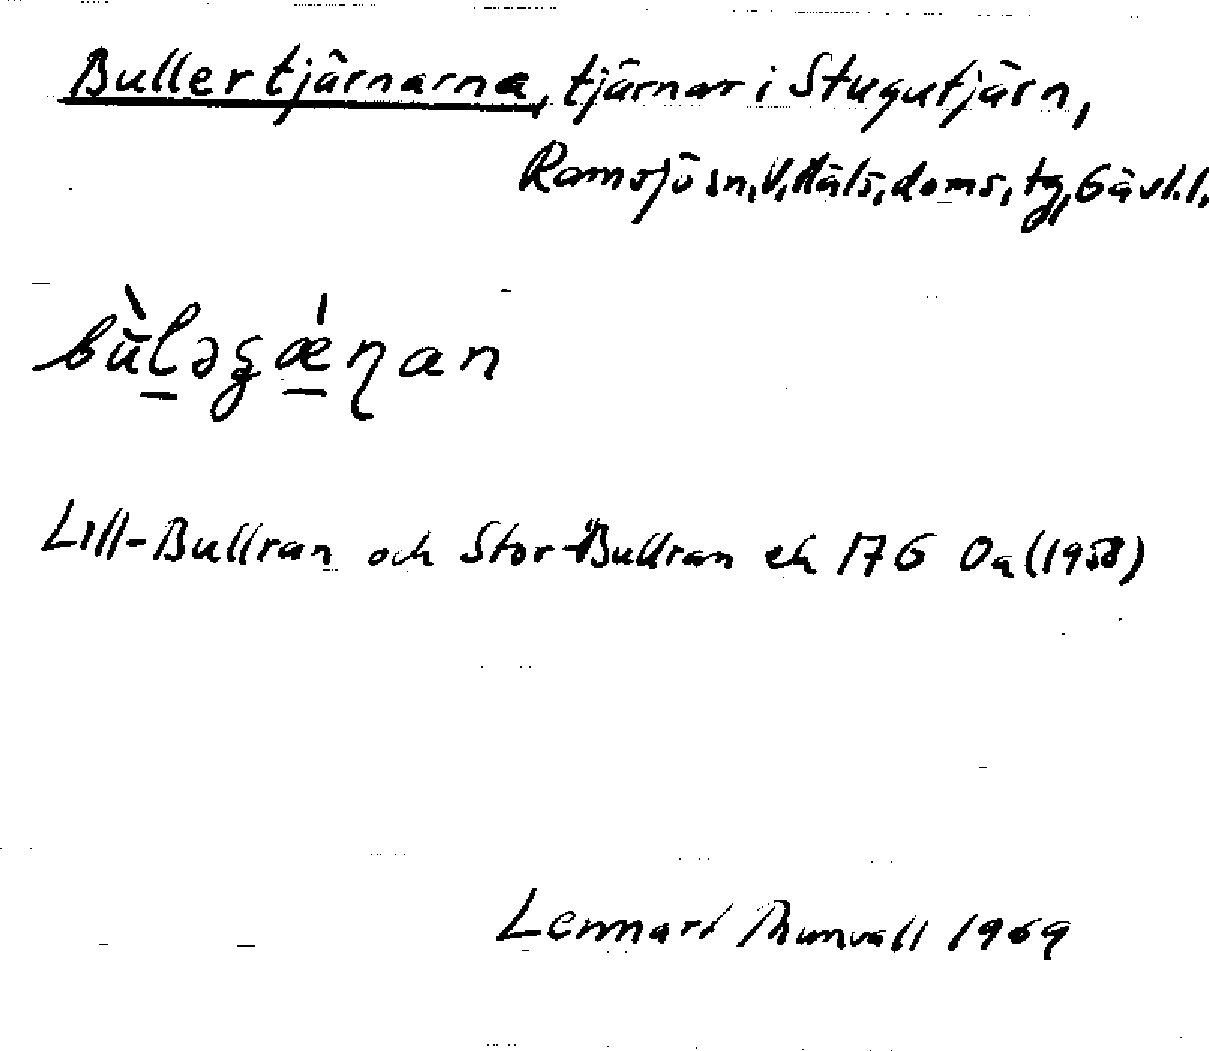 Bullertjärnarna, tjärnar i Stugutjärn,
Ramsjö sn, V. Häls. doms. tg, Gävl. l.
Lill-Bullran och Stor-Bullran ek 17G 0a (1958)
Lennart Thunvall 1969